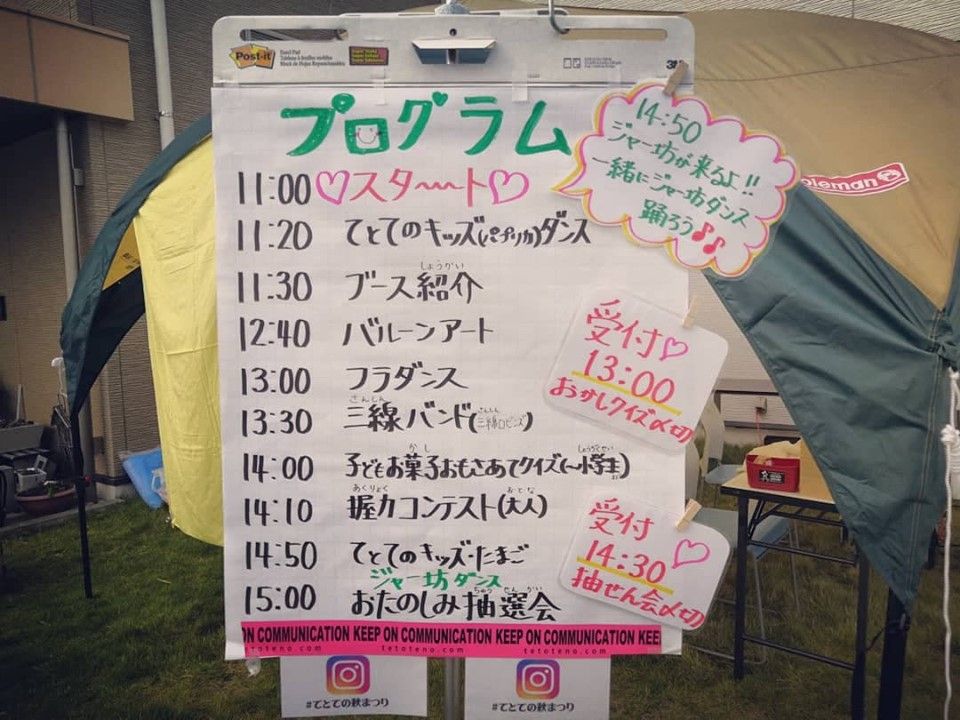 Post-it
プログラム
14:50
ジャー坊が来るよ!!
一緒にジャー坊ダンス
踊ろう♪♪
oleman
11:00 ♡スタ〜〜ト♡
11:20 てとてのキッズ(パプリカ)ダンス
しょうかい
11:30 ブース紹介
12:40 バルーンアート
13:00 フラダンス
さんしん さんしん
13:30 三線バンド(三線ロビンズ)
受付♡
13:00
おかしクイズ〆切
かし しょうがくせい
14:00 子どもお菓子おもさあてクイズ(〜小学生)
あくりょく おとな
14:10 握力コンテスト(大人)
14:50 てとてのキッズ・たまご
ジャー坊ダンス
ちゅうせんかい
15:00 おたのしみ抽選会
受付
14:30♡
抽せん会〆切
ON COMMUNICATION KEEP ON COMMUNICATION KEEP ON COMMUNICATION KEE
tetoteno.com tetoteno.com
#てとての秋まつり
#てとての秋まつり